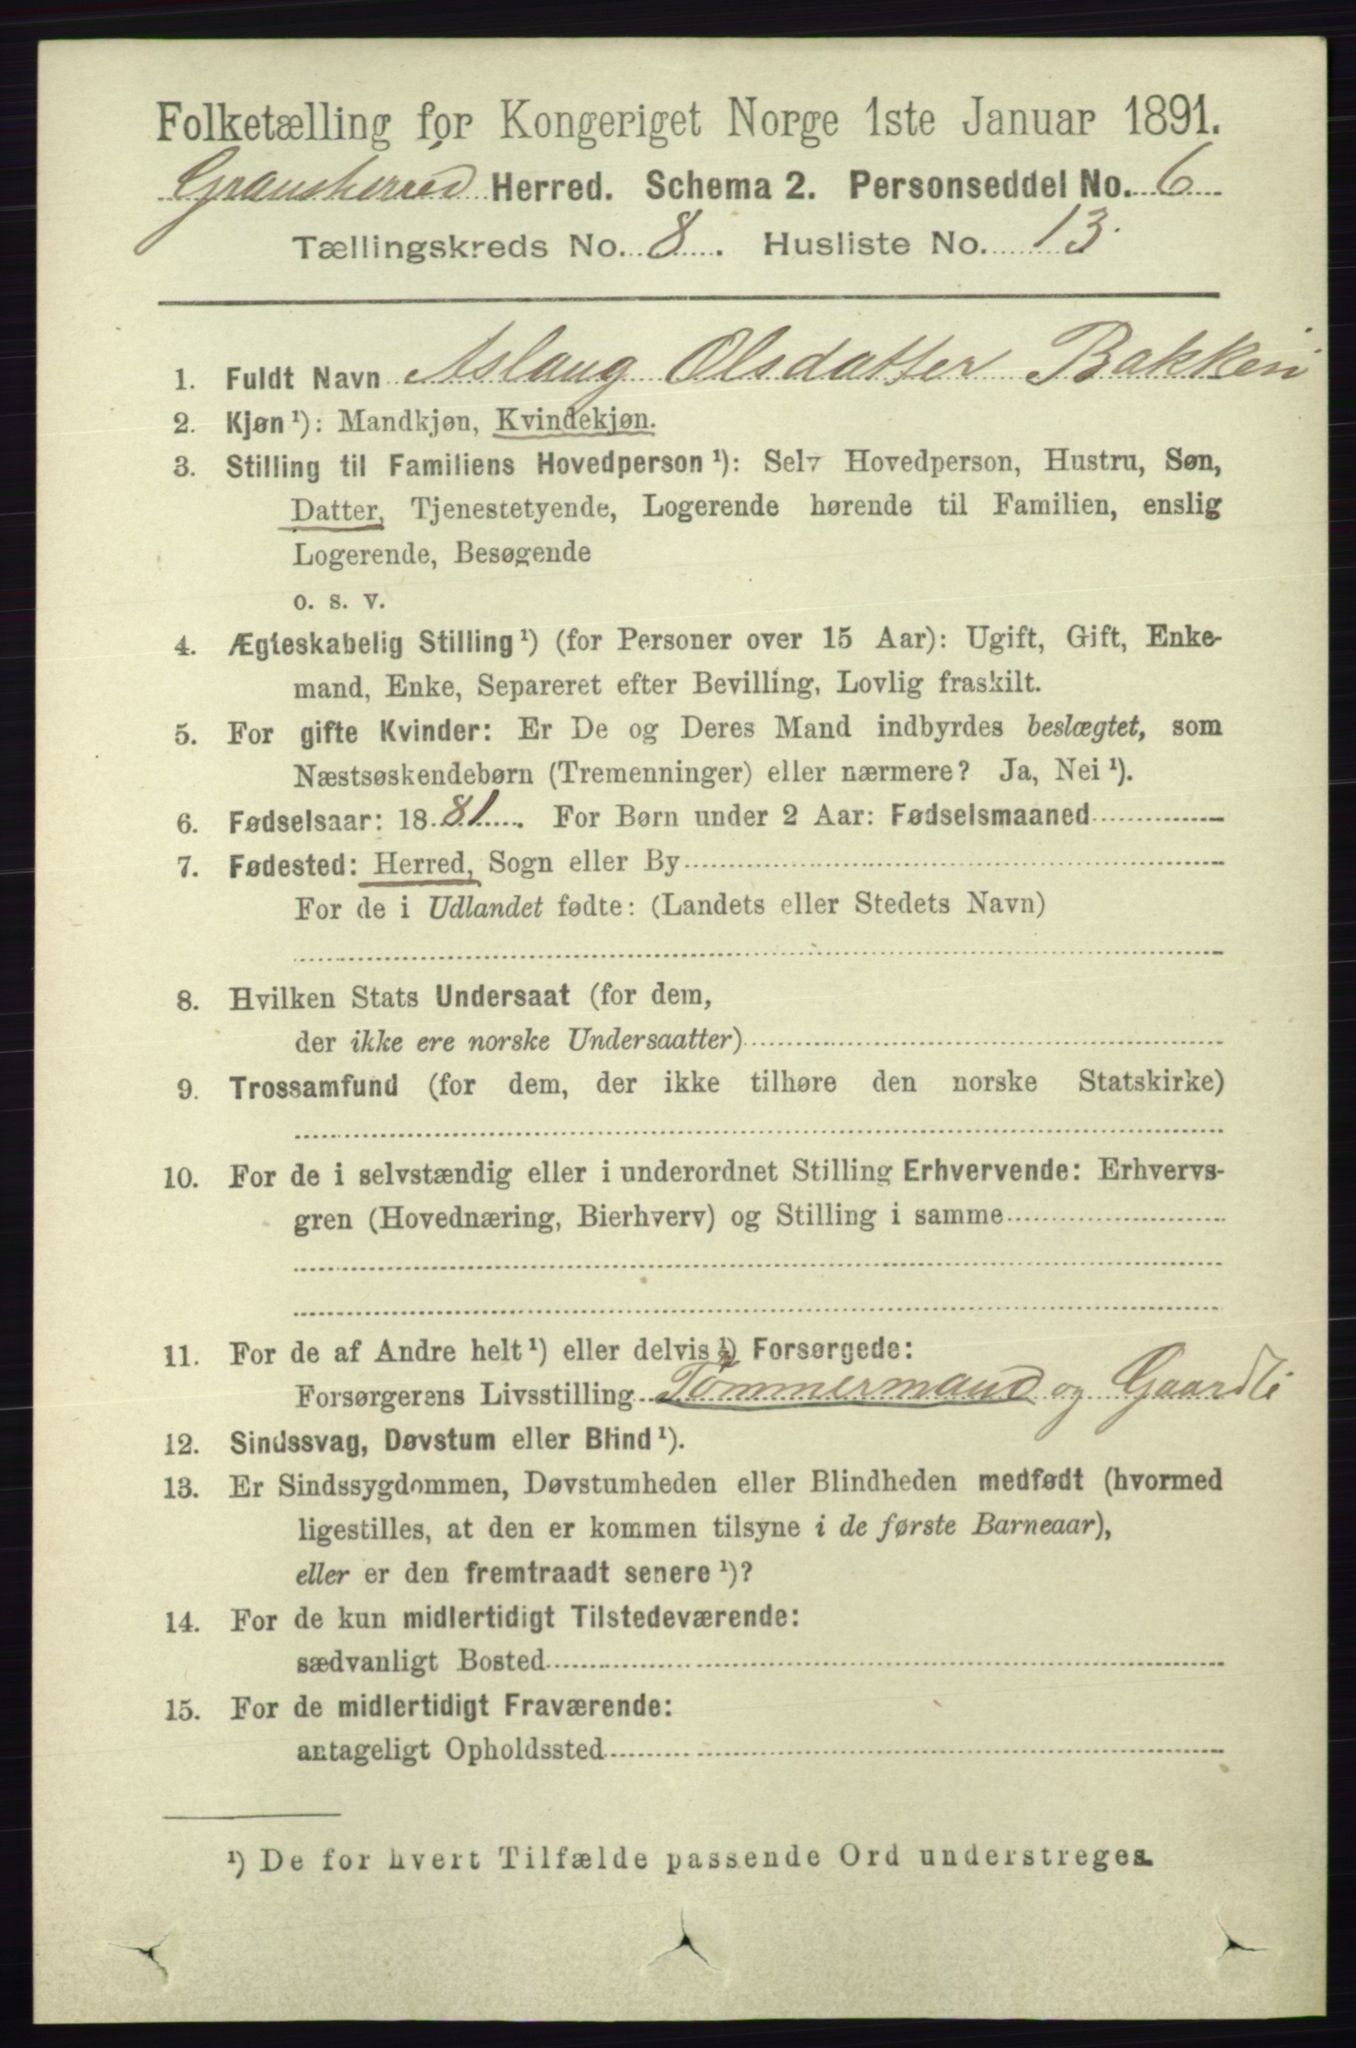 Folketælling for Kongeriget Norge 1ste Januar 1891.
Gransherred Herred. Schema 2. Personseddel No. 6
Tællingskreds No. 8. Husliste No. 13.
1. Fuldt Navn Aslaug Olsdatter Bakken
2. Kjøn¹): Mandkjøn, Kvindekjøn.
3. Stilling til Familiens Hovedperson¹): Selv Hovedperson, Hustru, Søn,
Datter, Tjenestetyende, Logerende hørende til Familien, enslig
Logerende, Besøgende
o. s. v.
4. Ægteskabelig Stilling¹) (for Personer over 15 Aar): Ugift, Gift, Enke-
mand, Enke, Separeret efter Bevilling, Lovlig fraskilt.
5. For gifte Kvinder: Er De og Deres Mand indbyrdes beslægtet, som
Næstsøskendebørn (Tremenninger) eller nærmere? Ja, Nei¹).
6. Fødselsaar: 1881. For Børn under 2 Aar: Fødselsmaaned
7. Fødested: Herred, Sogn eller By
For de i Udlandet fødte: (Landets eller Stedets Navn)
8. Hvilken Stats Undersaat (for dem,
der ikke ere norske Undersaatter)
9. Trossamfund (for dem, der ikke tilhøre den norske Statskirke)
10. For de i selvstændig eller i underordnet Stilling Erhvervende: Erhvervs-
gren (Hovednæring, Bierhverv) og Stilling i samme
11. For de af Andre helt¹) eller delvis¹) Forsørgede:
Forsørgerens Livsstilling Tømmermand og Gaardb
12. Sindssvag, Døvstum eller Blind¹).
13. Er Sindssygdommen, Døvstumheden eller Blindheden medfødt (hvormed
ligestilles, at den er kommen tilsyne i de første Barneaar),
eller er den fremtraadt senere¹)?
14. For de kun midlertidigt Tilstedeværende:
sædvanligt Bosted
15. For de midlertidigt Fraværende:
antageligt Opholdssted
¹) De for hvert Tilfælde passende Ord understreges.